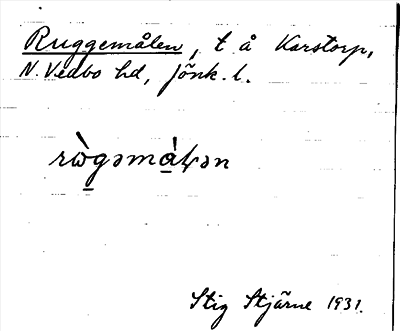 Ruggemålen, t å Karstorp,
N. Vedbo hd, Jönk. l.
Stig Stjärne 1931.